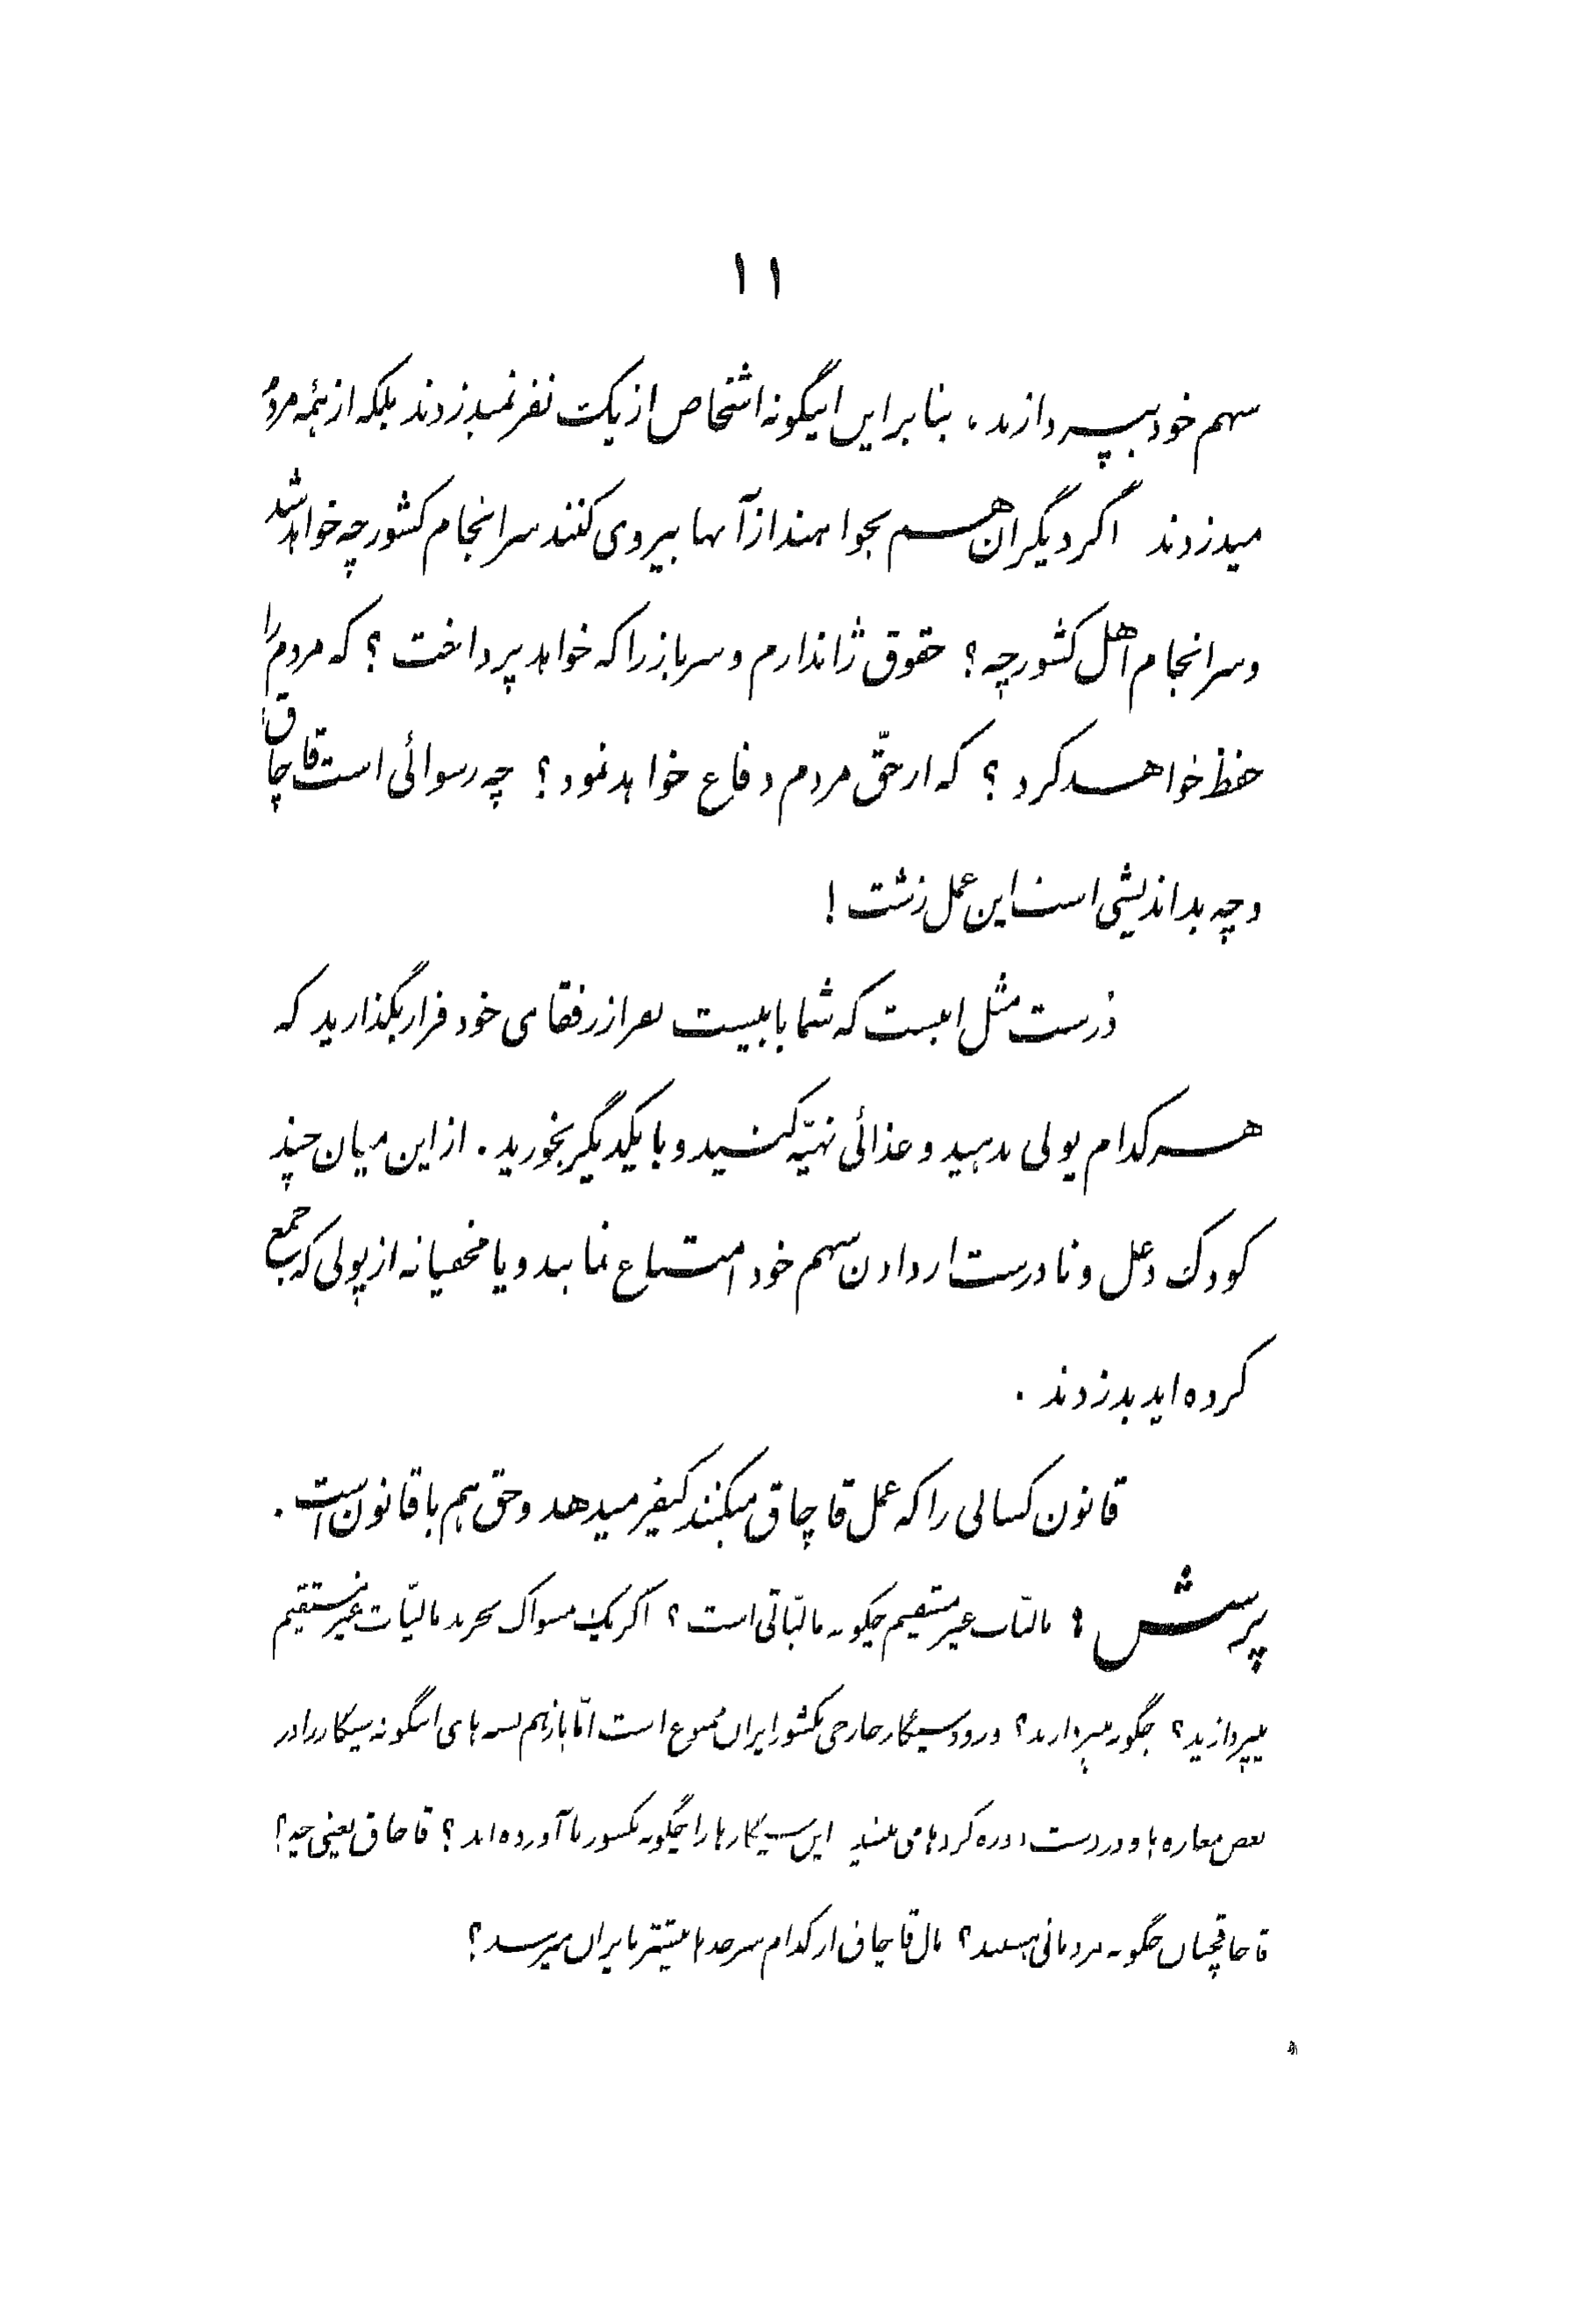 ۱۱
سهم خود بپردازند، بنابراین اینگونه اشخاص از یک نفر نمیدزدند بلکه از همه مردم
میدزدند اگر دیگران هم بخواهند از آنها پیروی کنند سرانجام کشور چه خواهد شد
و سرانجام اهل کشور چه؟ حقوق ژاندارم و سرباز را که خواهد پرداخت؟ که مردم را
حفظ خواهد کرد؟ که از حقّ مردم دفاع خواهد نمود؟ چه رسوائی است قاچاق
و چه بداندیشی است این عمل زشت!
درست مثل اینست که شما با بیست نفر از رفقای خود قرار بگذارید که
هر کدام پولی بدهید و غذائی تهیّه کنید و با یکدیگر بخورید. از این میان چند
کودک دغل و نادرست از دادن سهم خود امتناع نمایند و یا مخفیانه از پولی که جمع
کرده اید بدزدند.
قانون کسانی را که عمل قاچاق میکنند کیفر میدهد و حق هم با قانون است.
پرسش: مالیّات غیر مستقیم چگونه مالیّاتی است؟ اگر یک مسواک بخرید مالیّات غیر مستقیم
میپردازید؟ چگونه میپردازید؟ ورود سیگار خارجی بکشور ایران ممنوع است امّا باز هم بسته های اینگونه سیگار را در
بعض مغازه ها و در دست دوره گردها می بینید این سیگارها را چگونه بکشور ما آورده اند؟ قاچاق یعنی چه؟
قاچاقچیان چگونه مردمانی هستند؟ مال قاچاق از کدام سرحدها بیشتر بایران میرسد؟